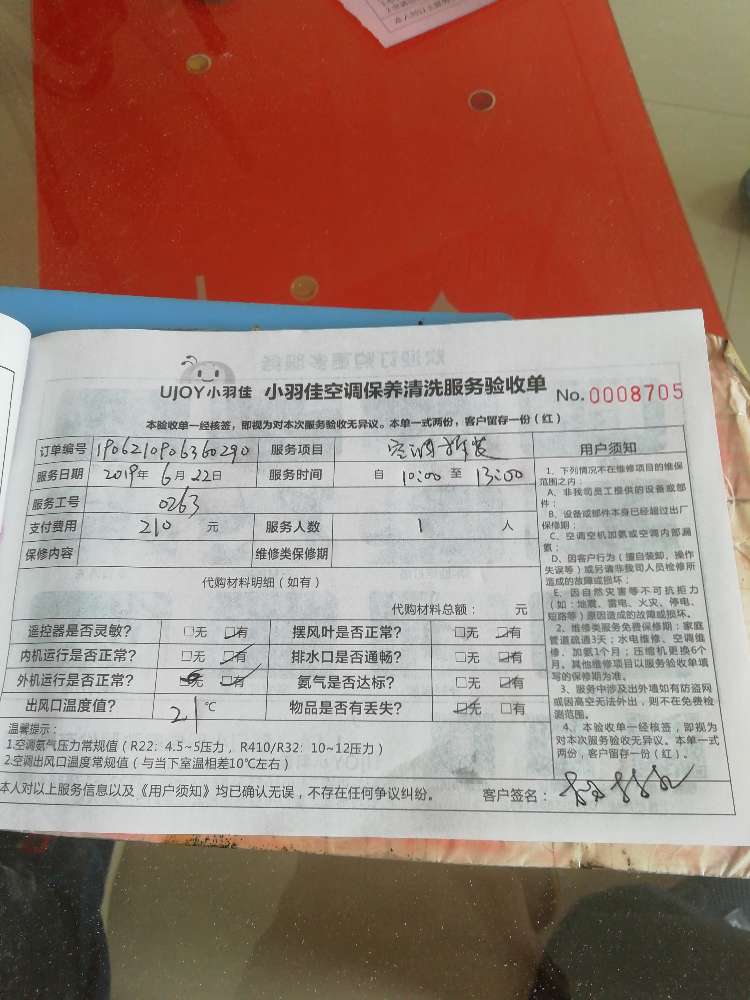 UJOY小羽佳 小羽佳空调保养清洗服务验收单 No. 0008705
本验收单一经核签，即视为对本次服务验收无异议。本单一式两份，客户留存一份（红）
订单编号 1906210906360290 服务项目 空调拆装
服务日期 2019年 6月22日 服务时间 自 10:00 至 13:00
服务工号 0263
支付费用 210 元 服务人数 1 人
保修内容 维修类保修期
代购材料明细（如有）
代购材料总额： 元
遥控器是否灵敏？ □无 □有 摆风叶是否正常？ □无 □有
内机运行是否正常？ □无 □有 排水口是否通畅？ □无 □有
外机运行是否正常？ □无 □有 氨气是否达标？ □无 □有
出风口温度值？ 21℃ 物品是否有丢失？ □无 □有
温馨提示：
1.空调氨气压力常规值（R22：4.5~5压力， R410/R32：10~12压力）
2.空调出风口温度常规值（与当下室温相差10℃左右）
本人对以上服务信息以及《用户须知》均已确认无误，不存在任何争议纠纷。 客户签名：
用户须知
1、下列情况不在维修项目的维保
范围之内：
A、非我司员工提供的设备或部
件；
B、设备或部件本身已经超过出厂
保修期；
C、空调空机加氨或空调内部漏
氨；
D、因客户行为（擅自装卸、操作
失误等）或另请非我司人员检修所
造成的故障或损坏；
E、因自然灾害等不可抗拒力
（如：地震、雷电、火灾、停电、
短路等）原因造成的故障或损坏。
2、维修类服务免费保修期：家庭
管道疏通3天；水电维修、空调维
修、加氨1个月；压缩机更换6个
月。其他维修项目以服务验收单填
写的保修期为准。
3、服务中涉及出外墙如有防盗网
或因高空无法外出，则不在免费检
测范围。
4、本验收单一经核签，即视为
对本次服务验收无异议。本单一式
两份，客户留存一份（红）。